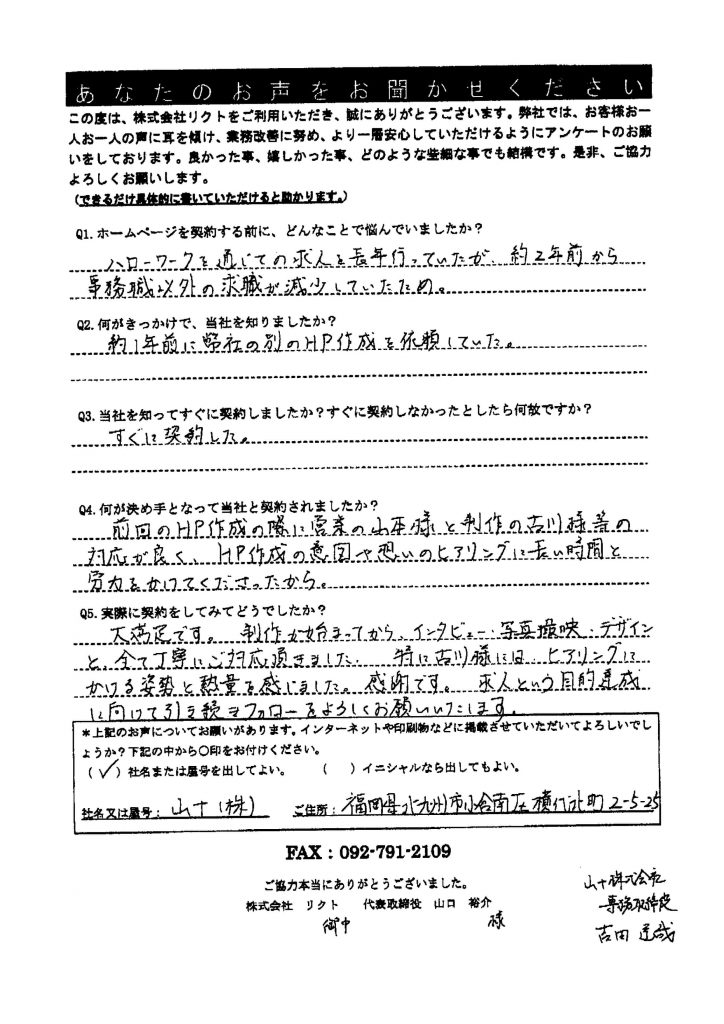 あなたのお声をお聞かせください
この度は、株式会社リクトをご利用いただき、誠にありがとうございます。弊社では、お客様お一
人お一人の声に耳を傾け、業務改善に努め、より一層安心していただけるようにアンケートのお願
いをしております。良かった事、嬉しかった事、どのような些細な事でも結構です。是非、ご協力
よろしくお願いします。
(できるだけ具体的に書いていただけると助かります。)
Q1.ホームページを契約する前に、どんなことで悩んでいましたか？
ハローワークを通じての求人を長年行っていたが、約2年前から
事務職以外の求職が減少していたため。
Q2.何がきっかけで、当社を知りましたか？
約1年前に弊社の別のHP作成を依頼していた。
Q3.当社を知ってすぐに契約しましたか？すぐに契約しなかったとしたら何故ですか？
すぐに契約した。
Q4.何が決め手となって当社と契約されましたか？
前回のHP作成の際に営業の山本様と制作の古川様等の
対応が良く、HP作成の意図や想いのヒアリングに長い時間と
労力をかけてくださったから。
Q5.実際に契約をしてみてどうでしたか？
大満足です。制作が始まってから、インタビュー・写真撮映・デザイン
と、全て丁寧にご対応頂きました。特に古川様には、ヒアリングに
かける姿勢と熱量を感じました。感謝です。求人という目的達成
に向けて引き続きフォローをよろしくお願いいたします。
＊上記のお声についてお願いがあります。インターネットや印刷物などに掲載させていただいてよろしいでし
ょうか？下記の中から〇印をお付けください。
(✓)社名または屋号を出してよい。 ( )イニシャルなら出してもよい。
社名又は屋号：山十(株) ご住所：福岡県北九州市小倉南区横代北町2-5-25
FAX：092-791-2109
ご協力本当にありがとうございました。
株式会社 リクト 代表取締役 山口 裕介
御中 様
山十株式会社
専務取締役
吉田